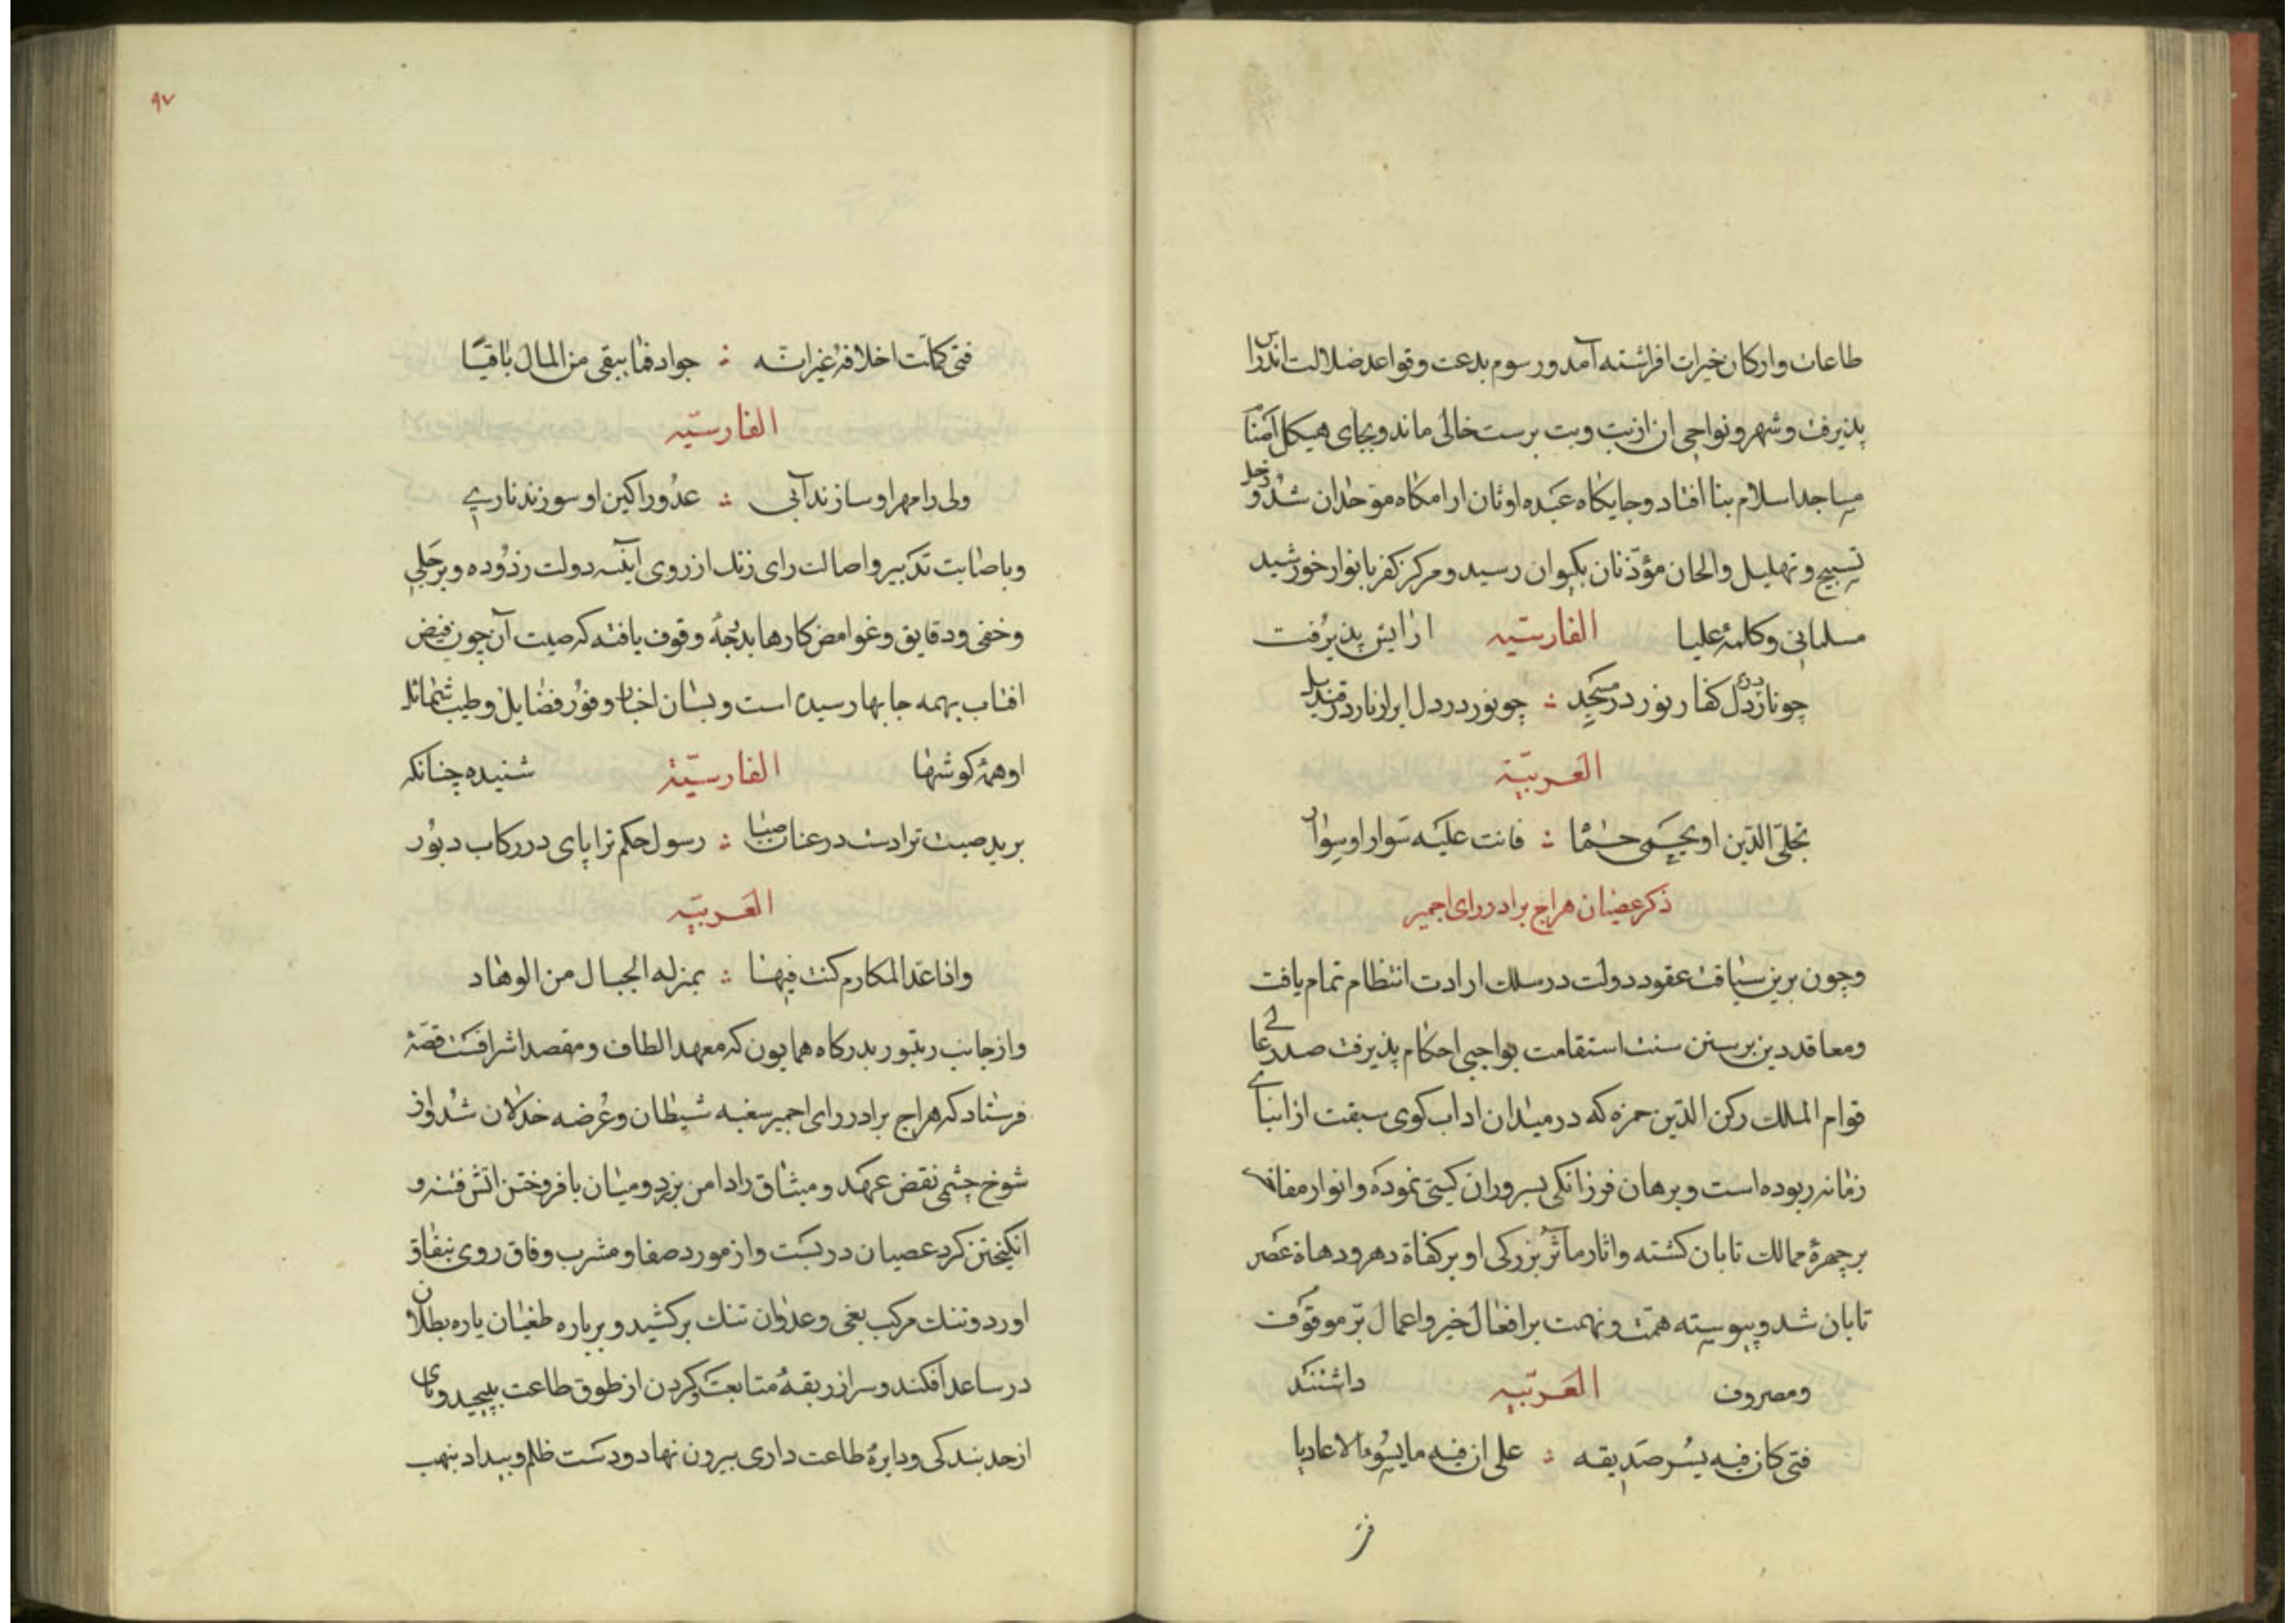 طاعات و ارکان خیرات افراشته آمد و رسوم بدعت و قواعد ضلالت اندراس
پذیرفت و شهر و نواحی ان از بت و بت برست خالی ماند و بجای هیکل اصنام
مساجد اسلام بنا افتاد و جایکاه عبده اوثان ارامکاه موحدان شد و زجل
تسبیح و تهلیل و الحان مؤذنان بکیوان رسید و مرکز کفر بانوار خورشید
مسلمانی و کلمۀ علیا الفارسیه ارایش پذیرفت
چو نار در دل کفار نور در مسجد ؞ چو نور در دل ابرار نار در قندیل
العربیّة
تجلّی الدّین او یحمی حمًا ؞ فانت علیه سوار او سوار
ذکر عصیان هراج برادر رای اجمیر
و چون برین سیاقت عقود دولت در سلك ارادت انتظام تمام یافت
و معاقد دین بر سنن سنت استقامت بواجبی احکام پذیرفت صدر عالی
قوام الملك رکن الدّین حمزه که در میدان اداب کوی سبقت از ابنای
زمانه ربوده است و برهان فرزانکی بسروران کیتی نموده و انوار مفاخر
بر چهرۀ ممالك تابان کشته و اثار ماثر بزرکی او بر کفاة دهر و دهاة عصر
تابان شد و پیوسته همت و نهمت بر افعال خیر و اعمال برّ موقوف
و مصروف العربیّه داشتند
فتی کان فیه یسر صدیقه ؞ علی ان فیه ما یسوء الاعادیا
فتی
۹۷
فتی کملت اخلاقه غیر انّه ؞ جواد فما یبقی من المال باقیًا
الفارسیّه
ولی را مهر او سازنده آبی ؞ عدو را کین او سوزنده ناری
و باصابت تدبیر و اصالت رای زنك از روی اینه دولت زدوده و بر جلی
و خفی و دقایق و غوامض کارها بدرجۀ وقوف یافته که صیت آن چون فیض
افتاب بهمه جایها رسیده است و بسان اخبار وفور فضایل و طیب شمائل
او همۀ کوشها الفارسیّة شنیده چنانکه
برید صیت ترا دست در عنان صبا ؞ رسول حکم ترا پای در رکاب دبور
العربیّه
و اذا عد المکارم کنت فیها ؞ بمنزله الجبال من الوهاد
و از جانب رنتبور بدرکاه همایون که معهد الطاف و مقصد اشرافست قصۀ
فرستاد که هراج برادر رای اجمیر سغبه شیطان و عرضه خذلان شد و از
شوخ چشمی نقض عهد و میثاق را دامن بر زد و میان بافروختن اتش فتنه و
انکیختن کرد عصیان دربست و از مورد صفا و مشرب وفاق روی بنفاق
اورد و تنك مرکب بغی و عدوان تنك برکشید و بر باره طغیان یاره بطلان
در ساعد افکند و سر از ربقۀ متابعت و کردن از طوق طاعت بپیچید و پای
از حد بندکی و دایرۀ طاعت داری بیرون نهاد و دست ظلم و بیداد بنهب